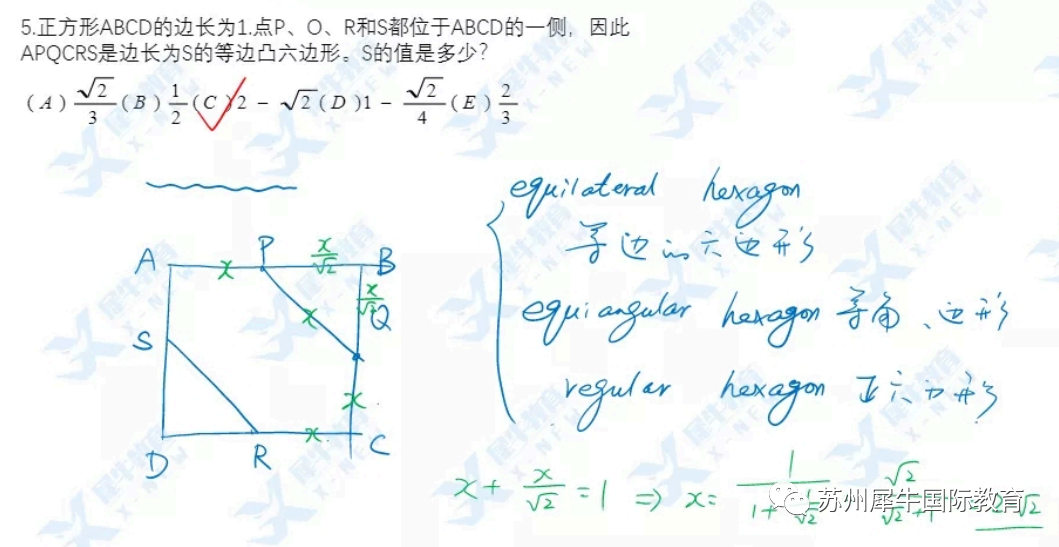 5.正方形ABCD的边长为1.点P、O、R和S都位于ABCD的一侧，因此
APQCRS是边长为S的等边凸六边形。S的值是多少?
(A) √2/3 (B) 1/2 (C) 2 - √2 (D) 1 - √2/4 (E) 2/3
equilateral hexagon
等边的六边形
equiangular hexagon 等角 边形
regular hexagon 正六边形
A x P x/√2 B
x/√2
x Q
S
x
D R x C
x + x/√2 = 1 ⇒ x = 1/(1+1/√2) √2/(√2+1) 2-√2
苏州犀牛国际教育
犀牛教育
X-NEW